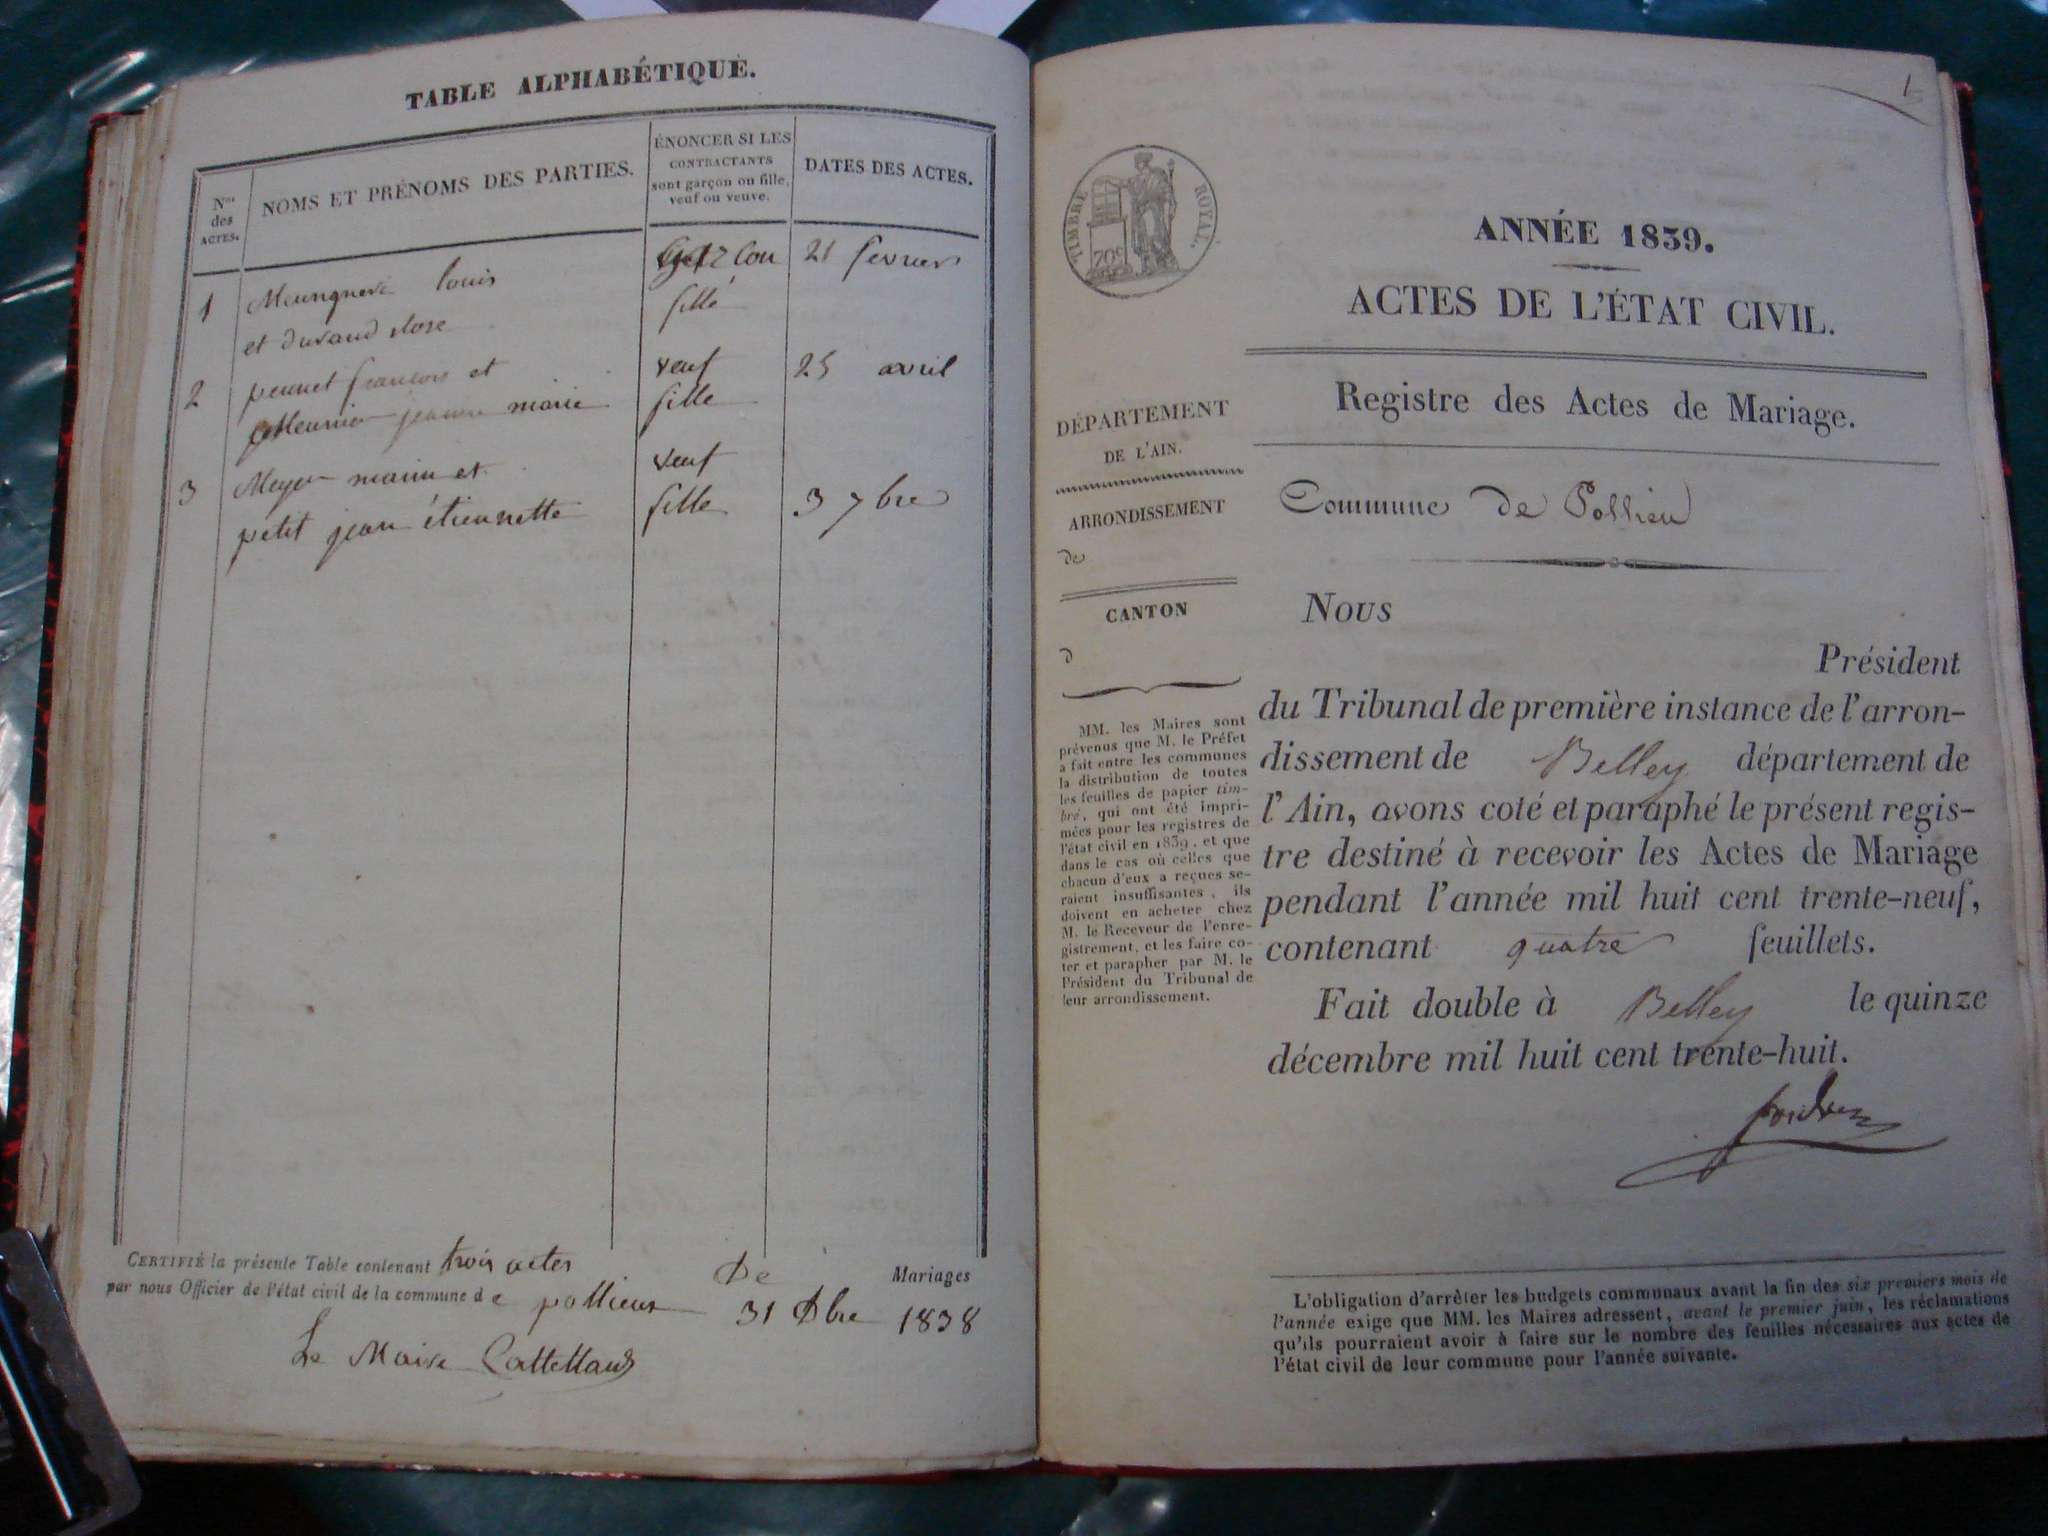 TABLE ALPHABÉTIQUE.
Nos des ACTES.
NOMS ET PRÉNOMS DES PARTIES.
ÉNONCER SI LES
CONTRACTANTS
sont garçon ou fille,
veuf ou veuve.
DATES DES ACTES.
1 louis 21 fevrier
et durand rose fille
2 francois et veuf 25 avril
Meunier jeanne marie fille
3 Meyer marin et veuf
petit jean étiennette fille 3 7bre
CERTIFIÉ la présente Table contenant trois actes De Mariages
par nous Officier de l'état civil de la commune de pollieux 31 Dbre 1838
Le Maire
1
TIMBRE ROYAL.
70c
ANNÉE 1839.
ACTES DE L'ÉTAT CIVIL.
Registre des Actes de Mariage.
DÉPARTEMENT
DE L'AIN.
ARRONDISSEMENT
de
CANTON
d
MM. les Maires sont
prévenus que M. le Préfet
a fait entre les communes
la distribution de toutes
les feuilles de papier tim-
bré, qui ont été impri-
mées pour les registres de
l'état civil en 1839, et que
dans le cas où celles que
chacun d'eux a reçues se-
raient insuffisantes, ils
doivent en acheter chez
M. le Receveur de l'enre-
gistrement, et les faire co-
ter et parapher par M. le
Président du Tribunal de
leur arrondissement.
Commune de Pollieu
Nous
Président
du Tribunal de première instance de l'arron-
dissement de Belley département de
l'Ain, avons coté et paraphé le présent regis-
tre destiné à recevoir les Actes de Mariage
pendant l'année mil huit cent trente-neuf,
contenant quatre feuillets.
Fait double à Belley le quinze
décembre mil huit cent trente-huit.
L'obligation d'arrêter les budgets communaux avant la fin des six premiers mois de
l'année exige que MM. les Maires adressent, avant le premier juin, les réclamations
qu'ils pourraient avoir à faire sur le nombre des feuilles nécessaires aux actes de
l'état civil de leur commune pour l'année suivante.